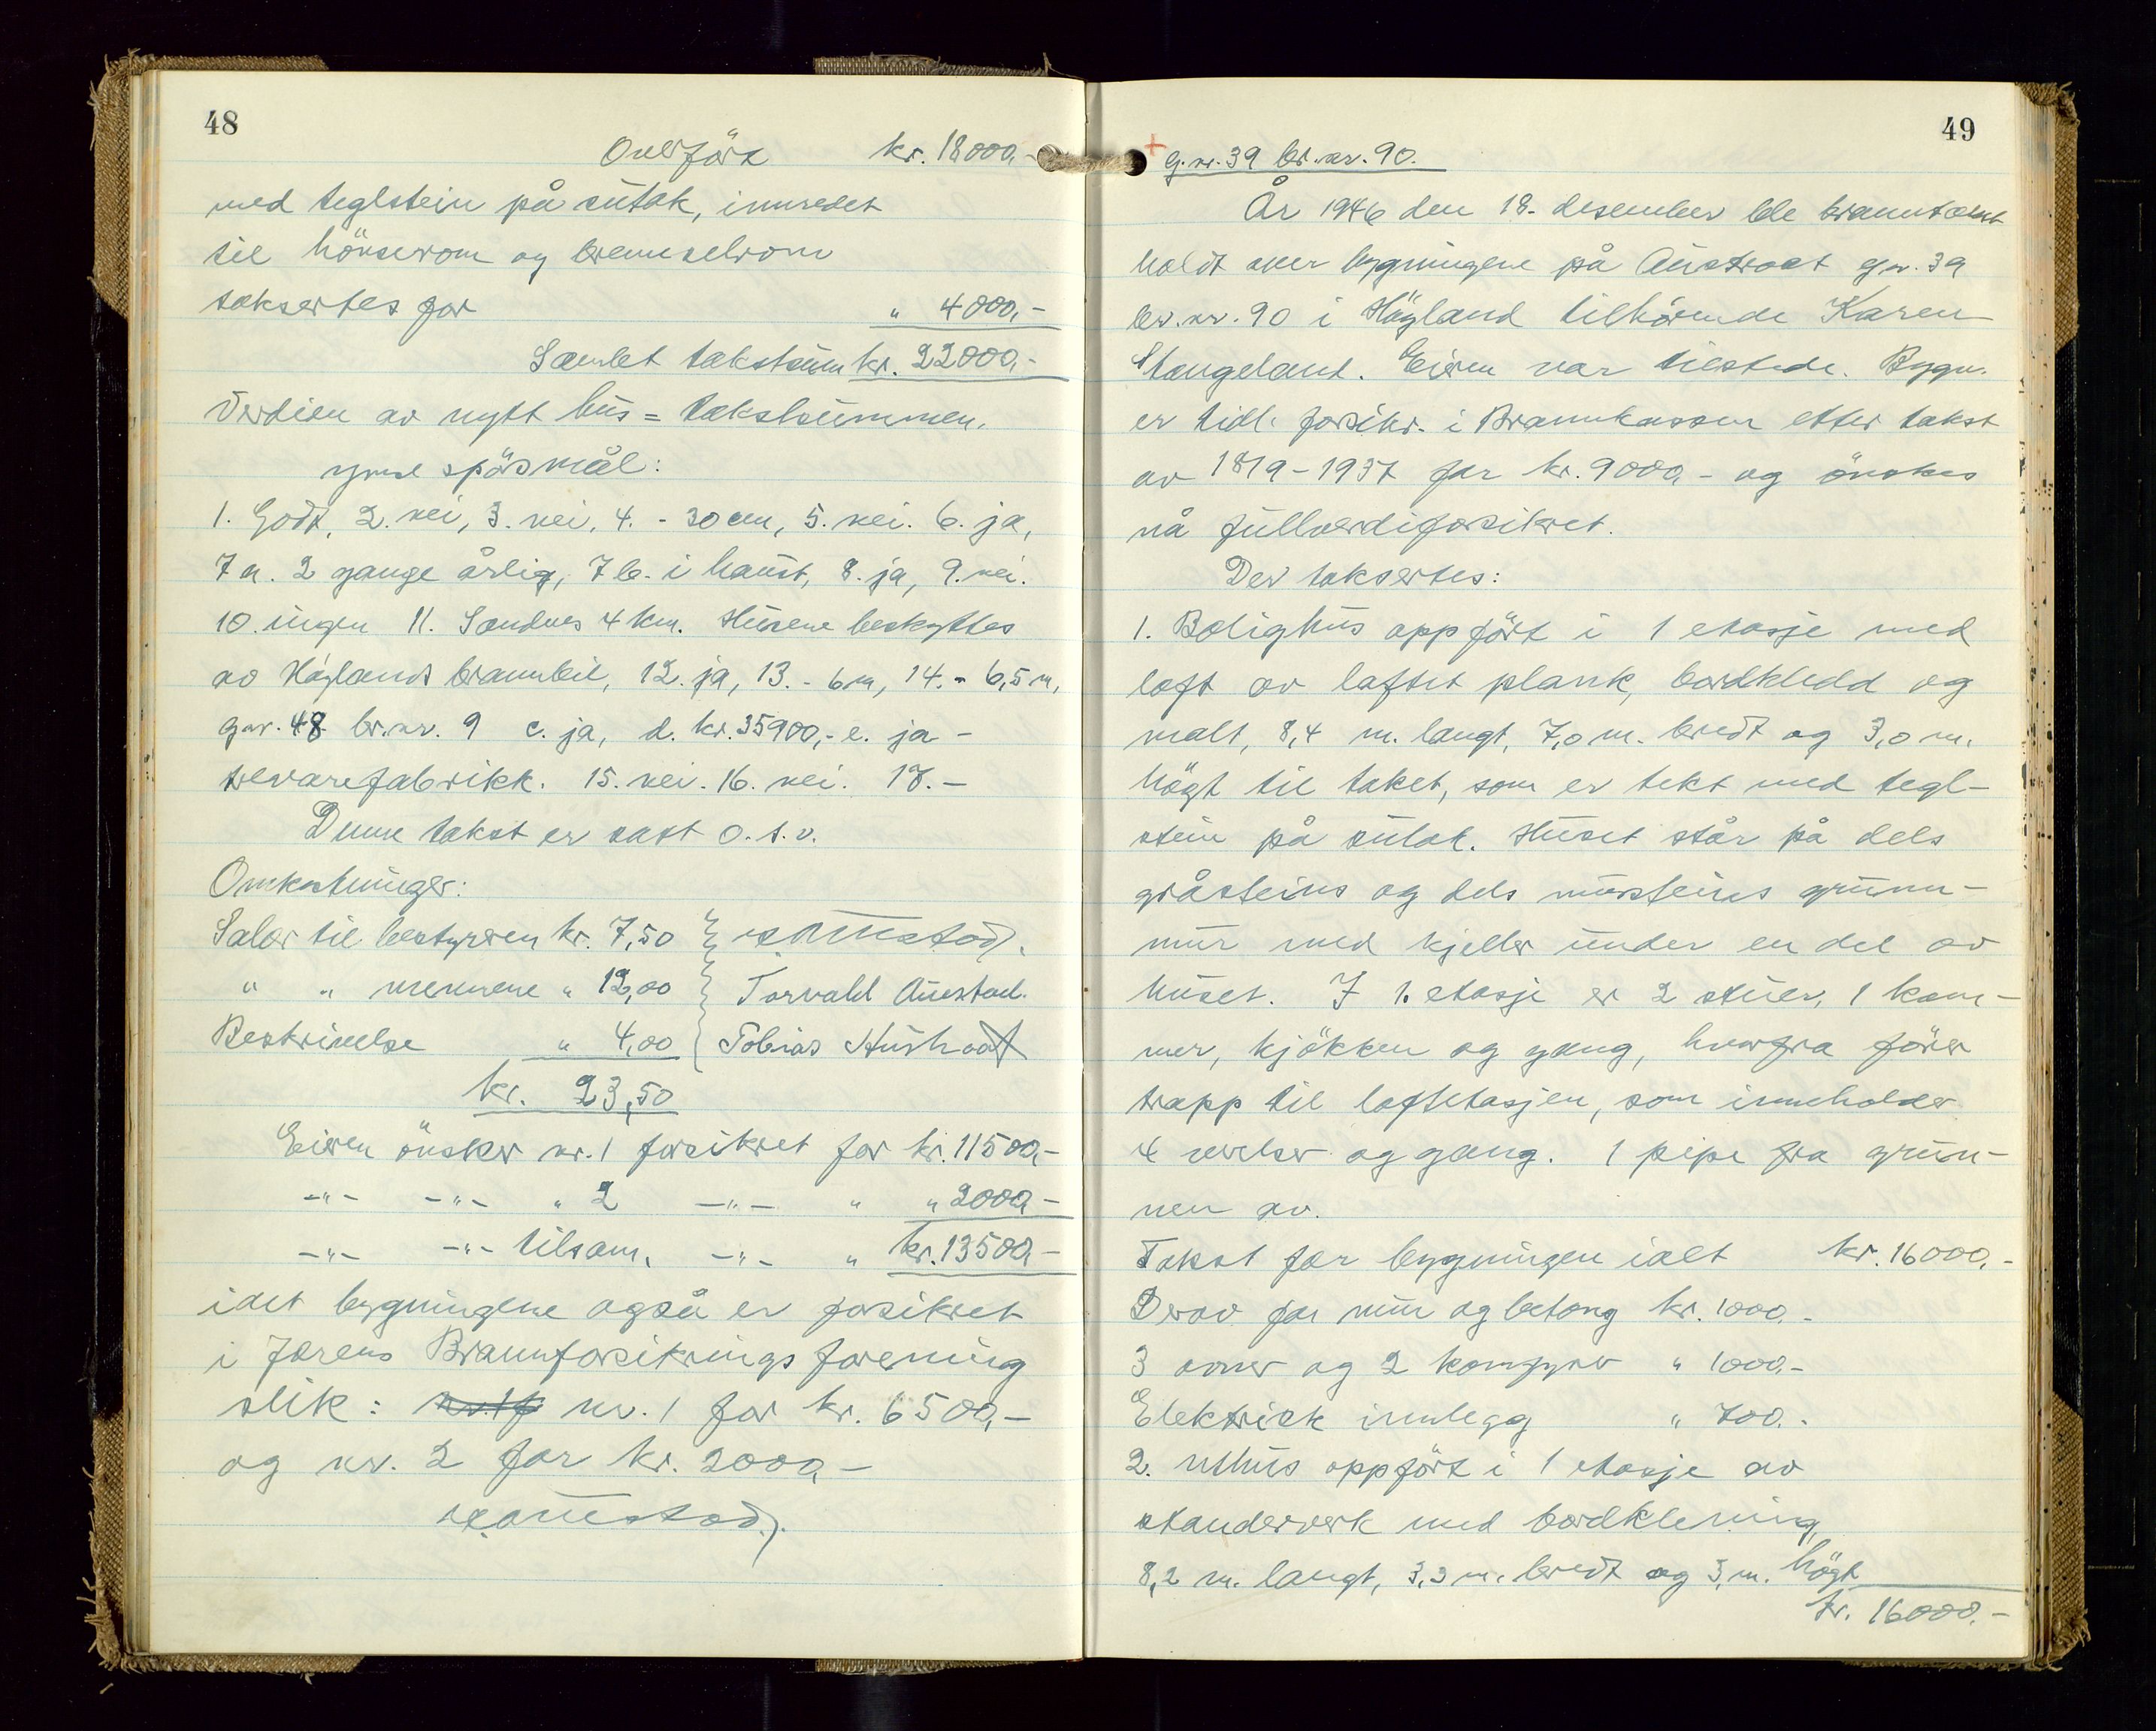 48
Overfört kr. 18000,-
med teglstein på sutak, innredet
til hönserom og brenselrom
taksertes for " 4000,-
Samlet takstsum kr. 22000,-
Verdien av nytt hus = takstsummen.
ymse spörsmål:
1. Godt, 2. nei, 3. nei, 4. - 30 cm, 5. nei. 6. ja,
7 a. 2 gange årlig, 7 b. i haust, 8. ja, 9. nei.
10. ingen 11. Sandnes 4 km. Husene beskyttes
av Höylands brannbil, 12. ja, 13. - 6 m, 14. - 6,5 m,
gnr. 48 br.nr. 9 c. ja, d. kr. 35900,- e. ja -
trevarefabrikk. 15. nei. 16. nei. 17. -
Denne takst er satt o.s.v.
Omkostninger:
Salær til bestyreren kr. 7,50
" " mennene " 12,00 Torvald Austad.
Beskrivelse " 4,00 Tobias
kr. 23,50
Eieren önsker nr. 1 forsikret for kr. 11500,-
-"- -"- " 2 -"- " " 2000,-
-"- -"- tilsam. -"- " kr. 13500,-
idet bygningene også er forsikret
i Jærens Brannforsikringsforening
slik: nr. 1 for kr. 6500,-
og nr. 2 for kr. 2000,-
49
+ g.nr. 39 br.nr. 90.
År 1946 den 18. desember ble branntakst
holdt over bygningene på Austraat gnr. 39
br.nr. 90 i Höyland tilhörende Karen
Stangeland. Eieren var tilstede. Bygn.
er tidl. forsikr. i Brannkassen etter takst
av 18/9-1937 for kr. 9000,- og önskes
nå fullverdiforsikret.
Der taksertes:
1. Bolighus oppfört i 1 etasje med
loft av laftet plank, bordkledd og
malt, 8,4 m. langt, 7,0 m. bredt og 3,0 m.
högt til taket, som er tekt med tegl-
stein på sutak. Huset står på dels
gråsteins og dels mursteins grunn-
mur med kjeller under en del av
huset. I 1. etasje er 2 stuer, 1 kam-
mer, kjökken og gang, hvorfra förer
trapp til loftetasjen, som inneholder
4 verelser og gang. 1 pipe fra grun-
nen av.
Takst for bygningen ialt kr. 16000,-
Derav for mur og betong kr. 1000.-
3 ovner og 2 komfyrer " 1000,-
Elektrisk innlegg " 700.-
2. Uthus oppfört i 1 etasje av
standerverk med bordkledning,
8,2 m. langt, 3,3 m. bredt og 3, m. högt
kr. 16000.-